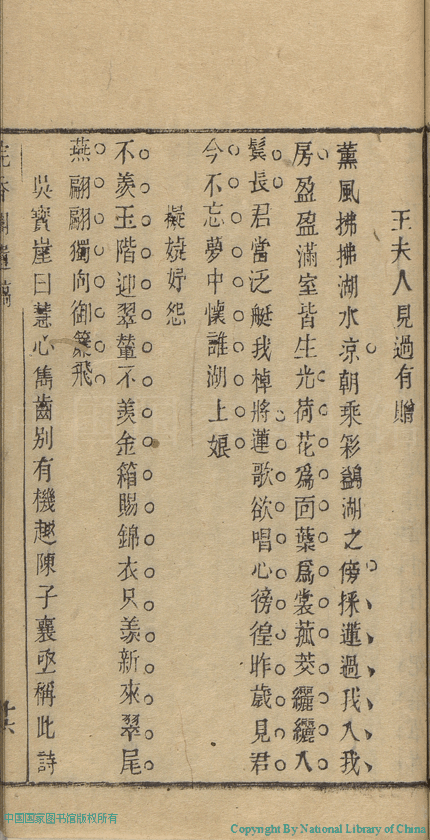 王夫人見過有贈
薰風拂拂湖水凉朝乘彩鷁湖之傍採蓮過我入我
房盈盈滿室皆生光荷花爲面葉爲裳菰茭纚纚入
鬓長君當泛艇我棹將蓮歌欲唱心徬徨昨歲見君
今不忘夢中懷誰湖上娘
擬婕妤怨
不羨玉階迎翠輦不羨金箱賜錦衣只羨新來翠尾
燕翩翩獨向御簾飛
吳寶崖曰慧心雋齒别有機趣陳子襄亟稱此詩
中国国家图书馆版权所有
Copyright By National Library of China